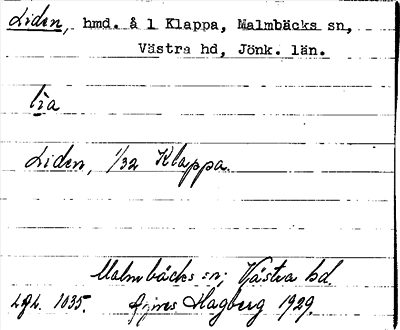 Liden, hmd. å 1 Klappa, Malmbäcks sn,
Västra hd, Jönk. län.
li̇a
Liden, 1/32 Klappa.
Malmbäcks sn; Västra hd.
Lgh. 1035. Agnes Hagberg 1929.